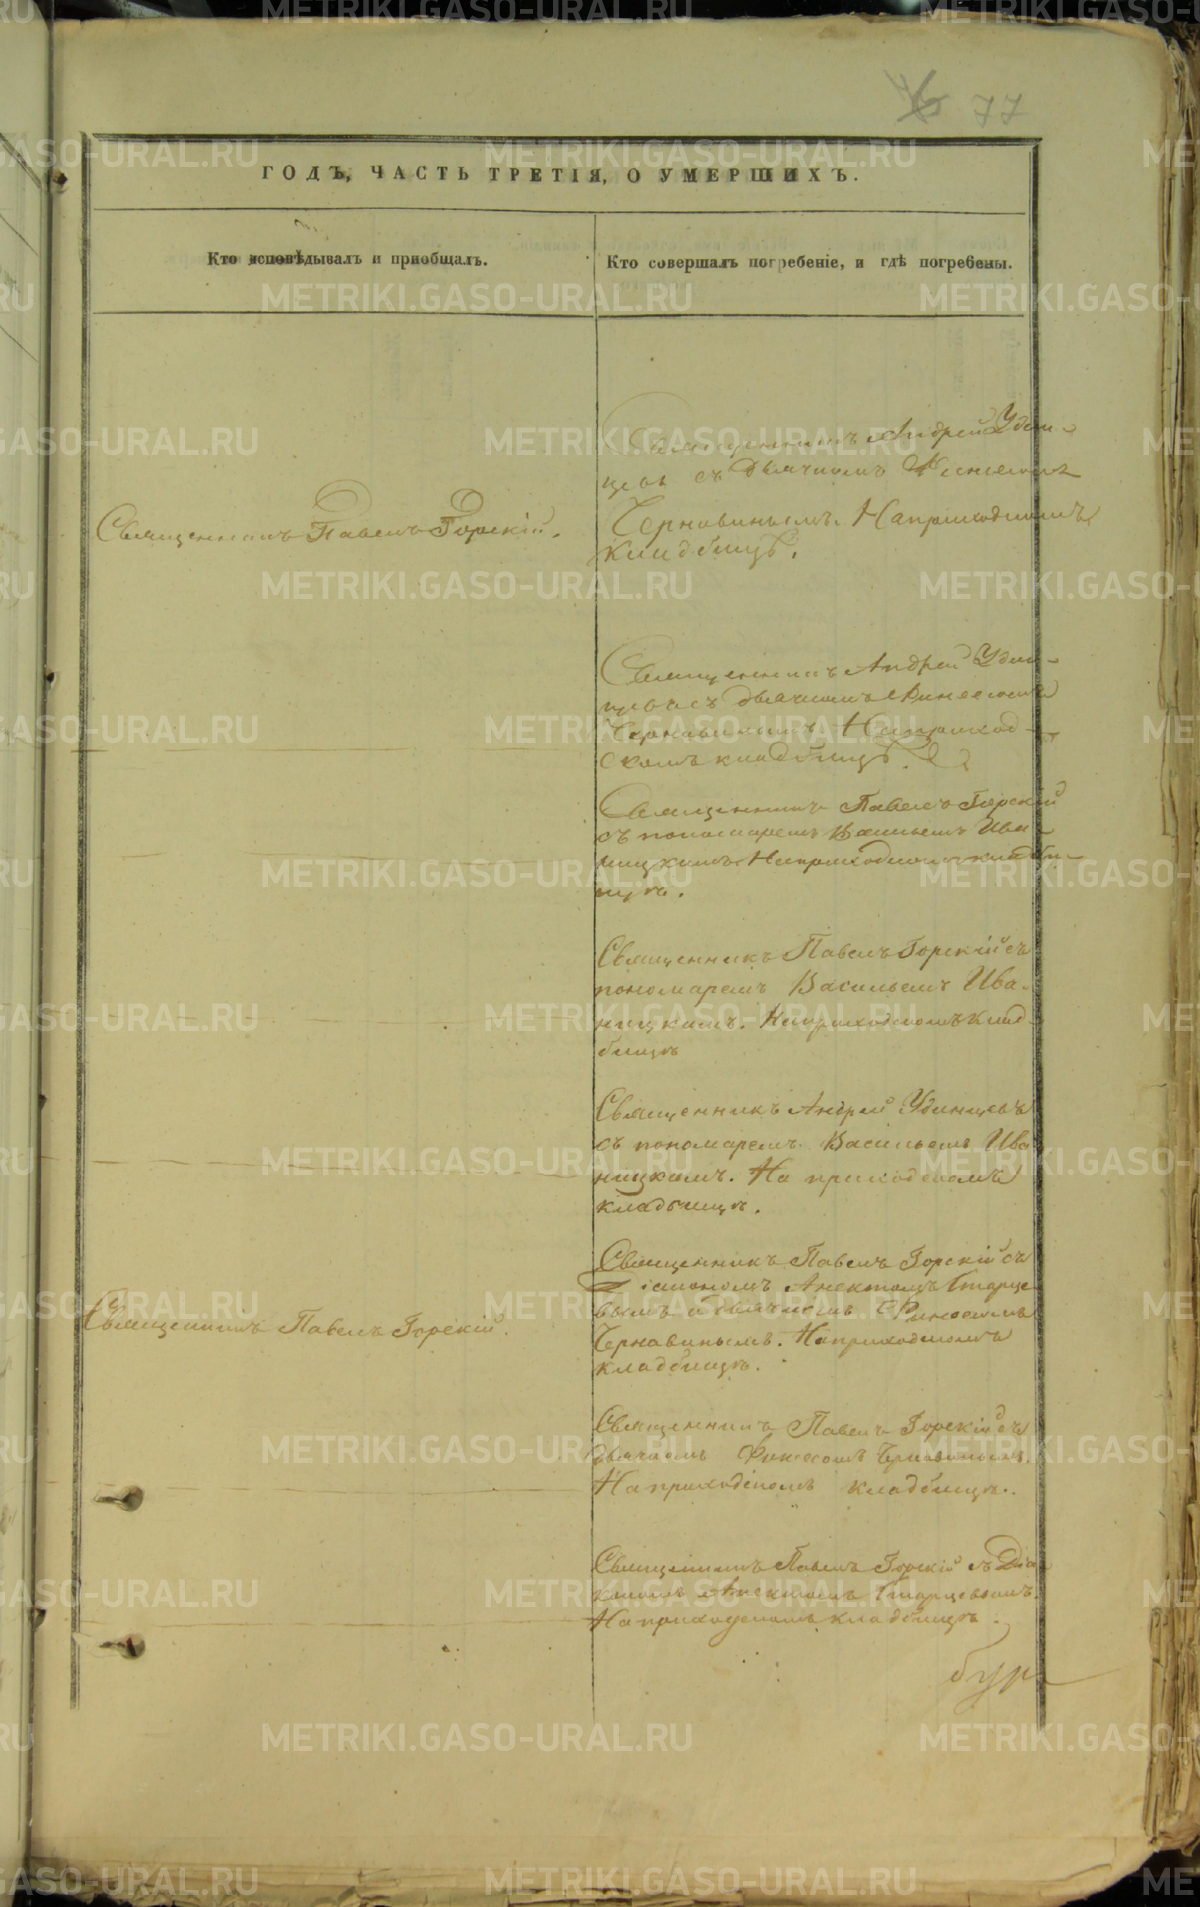 77
ГОДЪ, ЧАСТЬ ТРЕТІЯ, О УМЕРШИХЪ.
Кто исповѣдывалъ и приобщалъ.
Кто совершалъ погребеніе, и гдѣ погребены.
Священникъ Павелъ Горскій.
Священникъ Андрей Удин-
цевъ съ дьячкомъ
Чернавинымъ. На приходскомъ
кладбищѣ.
Священникъ Андрей Удин-
цевъ съ дьячкомъ Финеесомъ
Чернавинымъ На приход-
скомъ кладбищѣ.
Священникъ Павелъ Горскій
съ пономаремъ Васильемъ Ива-
ницкимъ На приходскомъ кладби-
щѣ.
Священникъ Павелъ Горскій съ
пономаремъ Васильемъ Ива-
ницкимъ. На приходскомъ клад-
бищѣ
Священникъ Андрей Удинцевъ
съ пономаремъ Васильемъ Ива
ницкимъ. На приходскомъ
кладбищѣ.
Священникъ Павелъ Горскій.
Священникъ Павелъ Горскій съ
Діакономъ Старце
вымъ и дьячкомъ Финеесомъ
Чернавинымъ. На приходскомъ
кладбищѣ.
Священникъ Павелъ Горскій съ
дьячкомъ Финеесомъ Чернавинымъ.
На приходскомъ кладбищѣ.
Священникъ Павелъ Горскій съ Діа
кономъ Старцевымъ.
На приходскомъ кладбищѣ.
METRIKI.GASO-URAL.RU